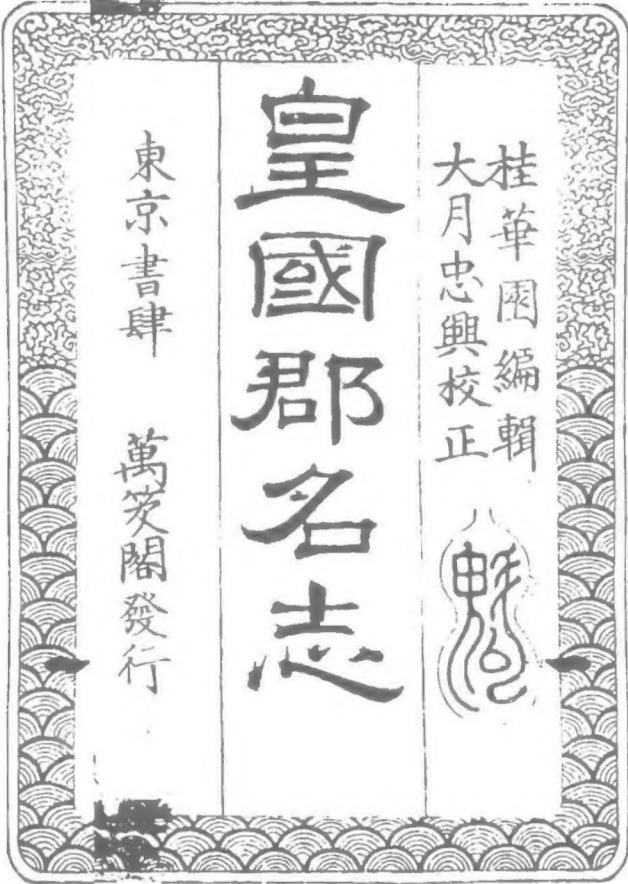 桂華園編輯
大月忠興校正
皇國郡名志
東京書肆　萬笈閣發行